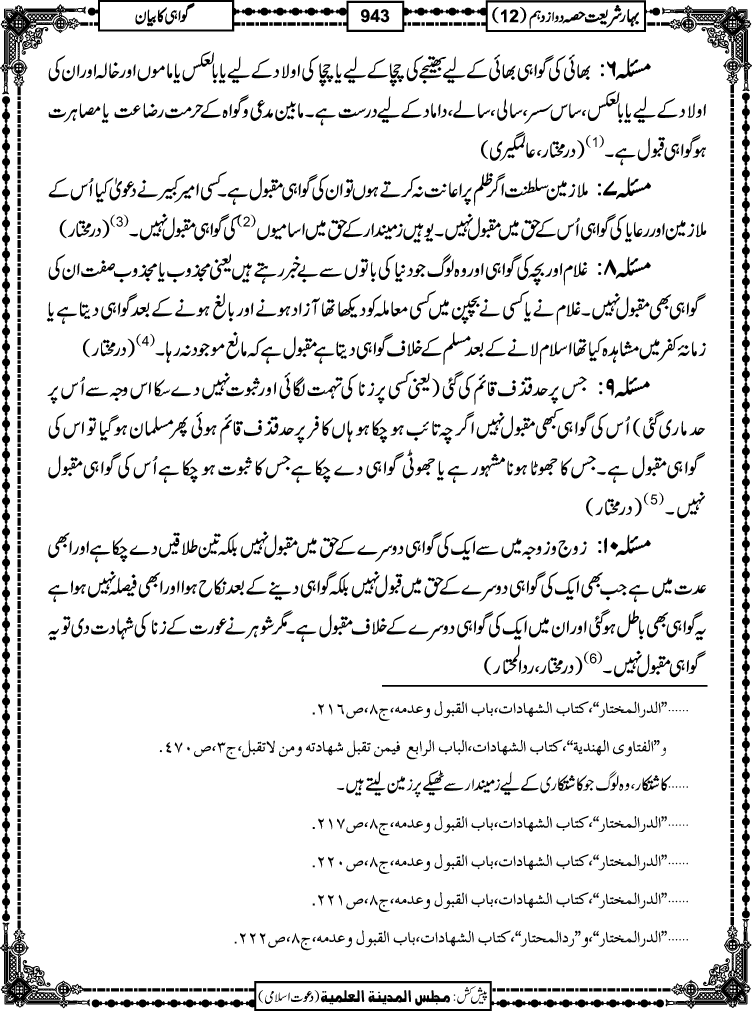 بہار شریعت حصہ دوازدہم (12)
943
گواہی کا بیان
مسئلہ ۶: بھائی کی گواہی بھائی کے لیے بھتیجے کی چچا کے لیے یا چچا کی اولاد کے لیے یا بالعکس یا ماموں اور خالہ اور ان کی
اولاد کے لیے یا بالعکس، ساس سسر، سالی، سالے، داماد کے لیے درست ہے۔ مابین مدعی و گواہ کے حرمت رضاعت یا مصاہرت
ہو گواہی قبول ہے۔(1) (درمختار، عالمگیری)
مسئلہ ۷: ملازمین سلطنت اگر ظلم پر اعانت نہ کرتے ہوں تو ان کی گواہی مقبول ہے۔ کسی امیر کبیر نے دعویٰ کیا اُس کے
ملازمین اور رعایا کی گواہی اُس کے حق میں مقبول نہیں۔ یوہیں زمیندار کے حق میں اسامیوں(2) کی گواہی مقبول نہیں۔(3) (درمختار)
مسئلہ ۸: غلام اور بچہ کی گواہی اور وہ لوگ جو دنیا کی باتوں سے بے خبر رہتے ہیں یعنی مجذوب یا مجذوب صفت ان کی
گواہی بھی مقبول نہیں۔ غلام نے یا کسی نے بچپن میں کسی معاملہ کو دیکھا تھا آزاد ہونے اور بالغ ہونے کے بعد گواہی دیتا ہے یا
زمانۂ کفر میں مشاہدہ کیا تھا اسلام لانے کے بعد مسلم کے خلاف گواہی دیتا ہے مقبول ہے کہ مانع موجود نہ رہا۔(4) (درمختار)
مسئلہ ۹: جس پر حد قذف قائم کی گئی (یعنی کسی پر زنا کی تہمت لگائی اور ثبوت نہیں دے سکا اس وجہ سے اُس پر
حد ماری گئی) اُس کی گواہی کبھی مقبول نہیں اگرچہ تائب ہو چکا ہو ہاں کافر پر حد قذف قائم ہوئی پھر مسلمان ہو گیا تو اس کی
گواہی مقبول ہے۔ جس کا جھوٹا ہونا مشہور ہے یا جھوٹی گواہی دے چکا ہے جس کا ثبوت ہو چکا ہے اُس کی گواہی مقبول
نہیں۔(5) (درمختار)
مسئلہ ۱۰: زوج و زوجہ میں سے ایک کی گواہی دوسرے کے حق میں مقبول نہیں بلکہ تین طلاقیں دے چکا ہے اور ابھی
عدت میں ہے جب بھی ایک کی گواہی دوسرے کے حق میں قبول نہیں بلکہ گواہی دینے کے بعد نکاح ہوا اور ابھی فیصلہ نہیں ہوا ہے
یہ گواہی بھی باطل ہو گئی اور ان میں ایک کی گواہی دوسرے کے خلاف مقبول ہے۔ مگر شوہر نے عورت کے زنا کی شہادت دی تو یہ
گواہی مقبول نہیں۔(6) (درمختار، ردالمحتار)
......”الدرالمختار“،کتاب الشھادات،باب القبول وعدمہ،ج۸،ص۲۱۶.
و”الفتاوی الھندیة“،کتاب الشھادات،الباب الرابع فیمن تقبل شھادته ومن لاتقبل،ج۳،ص۴۷۰.
......کاشتکار، وہ لوگ جو کاشتکاری کے لیے زمیندار سے ٹھیکے پر زمین لیتے ہیں۔
......”الدرالمختار“،کتاب الشھادات،باب القبول وعدمہ،ج۸،ص۲۱۷.
......”الدرالمختار“،کتاب الشھادات،باب القبول وعدمہ،ج۸،ص۲۲۰.
......”الدرالمختار“،کتاب الشھادات،باب القبول وعدمہ،ج۸،ص۲۲۱.
......”الدرالمختار“،و”ردالمحتار“،کتاب الشھادات،باب القبول وعدمہ،ج۸،ص۲۲۲.
پیش کش: مجلس المدینة العلمیة (دعوت اسلامی)